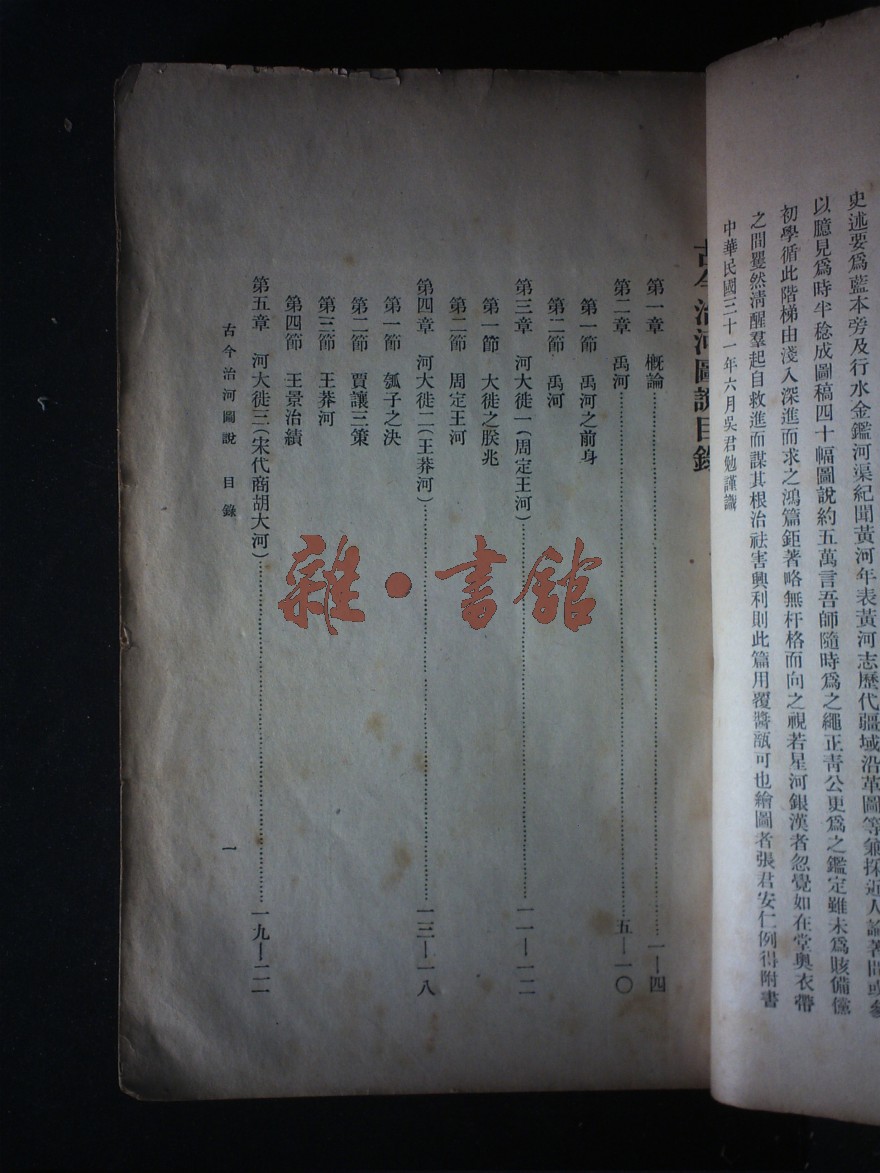 史述要爲藍本旁及行水金鑑河渠紀聞黃河年表黃河志歷代疆域沿革圖等兼採近人論著間或參
以臆見爲時半稔成圖稿四十幅圖說約五萬言吾師隨時爲之繩正青公更爲之鑑定雖未爲賅備儻
初學循此階梯由淺入深進而求之鴻篇鉅著略無杆格而向之視若星河銀漢者忽覺如在堂奧衣帶
之間矍然淸醒羣起自救進而謀其根治祛害興利則此篇用覆醬瓿可也繪圖者張君安仁例得附書
中華民國三十一年六月吳君勉謹識
古今治河圖說目錄
第一章　槪論…一—四
第二章　禹河…五—一〇
第一節　禹河之前身
第二節　禹河
第三章　河大徙一(周定王河)…一一—一二
第一節　大徙之朕兆
第二節　周定王河
第四章　河大徙二(王莽河)…一三—一八
第一節　瓠子之決
第二節　賈讓三策
第三節　王莽河
第四節　王景治績
第五章　河大徙三(宋代商胡大河)…一九—二一
古今治河圖說　目錄　一
雜·書館